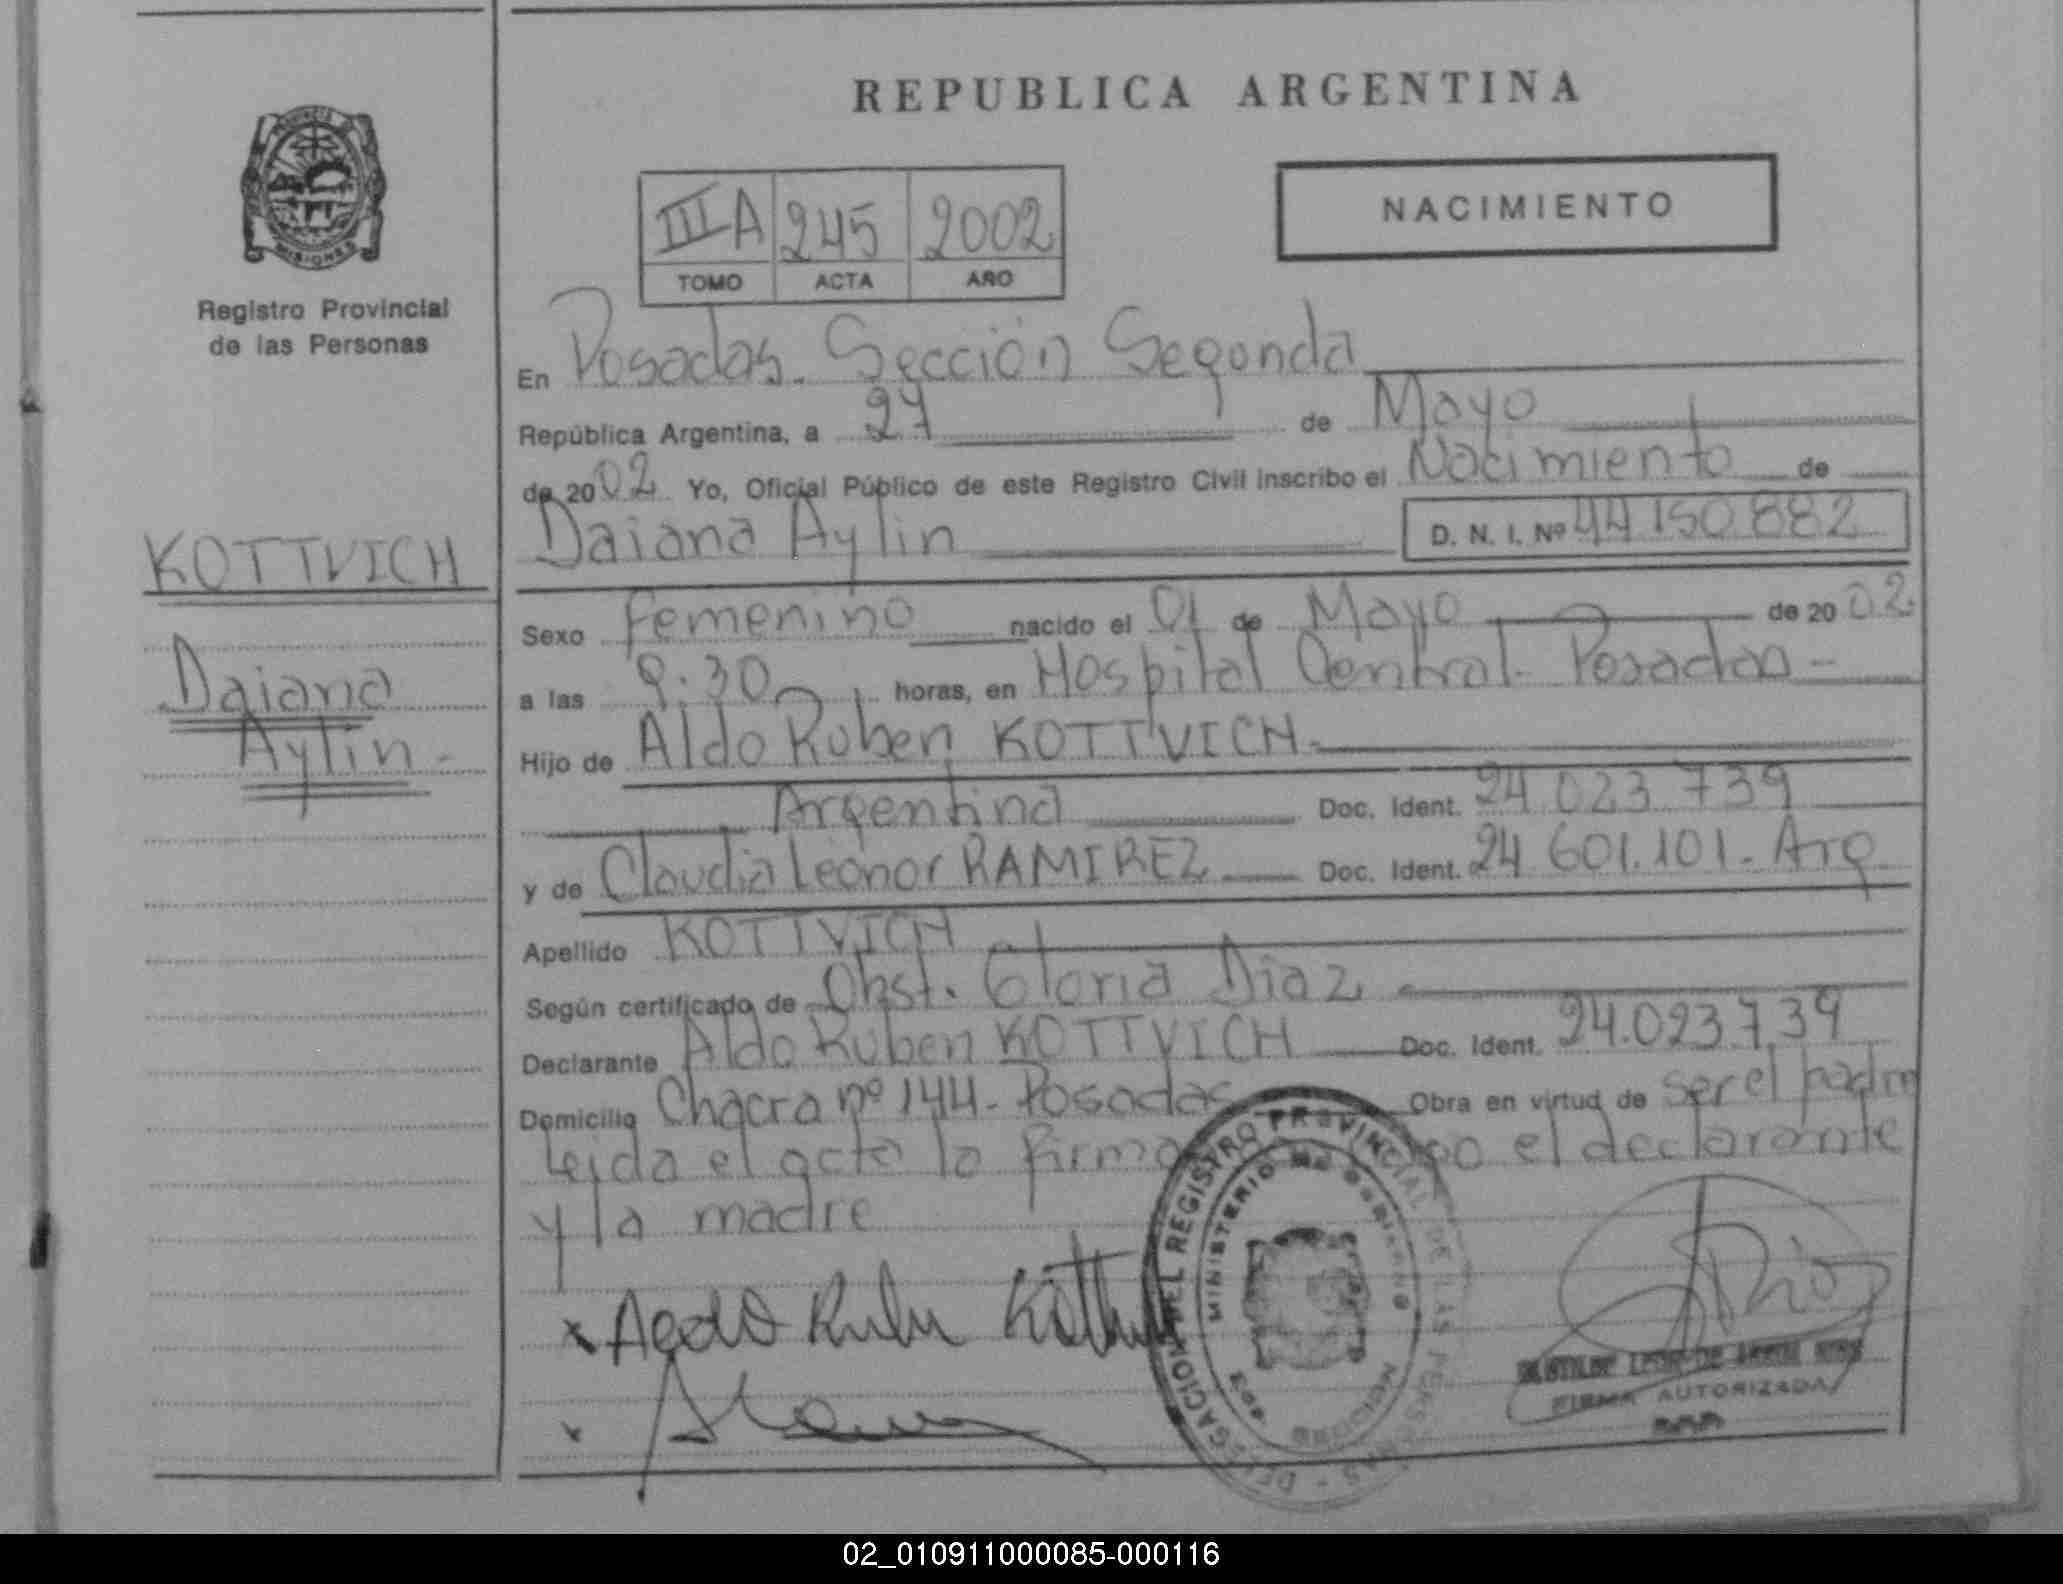 REPUBLICA ARGENTINA
PROVINCIA DE
MISIONES
Registro Provincial
de las Personas
IIIA 245 2002
TOMO ACTA AÑO
NACIMIENTO
En Posadas. Sección Segunda
República Argentina, a 27 de Mayo
de 2002 Yo, Oficial Público de este Registro Civil inscribo el Nacimiento de
Daiana Aylin D. N. I. Nº 44.150.882
KOTTVICH
Daiana
Aylin -
Sexo femenino nacido el 01 de Mayo de 2002.
a las 9:30 horas, en Hospital Central. Posadas -
Hijo de Aldo Ruben KOTTVICH.
Argentina Doc. Ident. 24.023.739
y de Claudia Leonor RAMIREZ Doc. Ident. 24.601.101. Arg
Apellido KOTTVICH
Según certificado de Obst. Gloria Diaz
Declarante Aldo Ruben KOTTVICH Doc. Ident. 24.023.739
Domicilio Chacra nº 144. Posadas Obra en virtud de ser el padre
Leida el acta la firma el declarante
y la madre
x Aldo Ruben
x
DELEGACION DEL REGISTRO PROVINCIAL DE LAS PERSONAS
MINISTERIO DE GOBIERNO
MISIONES
FIRMA AUTORIZADA
02_010911000085-000116